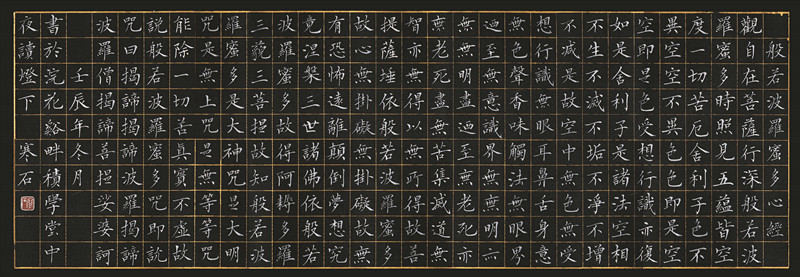 般若波羅蜜多心經
觀自在菩薩行深般若波
羅蜜多時照見五蘊皆空
度一切苦厄舍利子色不
異空空不異色色即是空
空即是色受想行識亦復
如是舍利子是諸法空相
不生不滅不垢不淨不增
不減是故空中無色無受
想行識無眼耳鼻舌身意
無色聲香味觸法無眼界
迺至無意識界無無明亦
無無明盡迺至無老死亦
無老死盡無苦集滅道無
智亦無得以無所得故菩
提薩埵依般若波羅蜜多
故心無掛礙無掛礙故無
有恐怖遠離顛倒夢想究
竟涅槃三世諸佛依般若
波羅蜜多故得阿耨多羅
三藐三菩提故知般若波
羅蜜多是大神咒是大明
咒是無上咒是無等等咒
能除一切苦真實不虛故
說般若波羅蜜多咒即說
咒曰揭諦揭諦波羅揭諦
波羅僧揭諦菩提娑婆訶
壬辰年冬月
書於浣花谿畔積學堂中
夜讀燈下 寒石